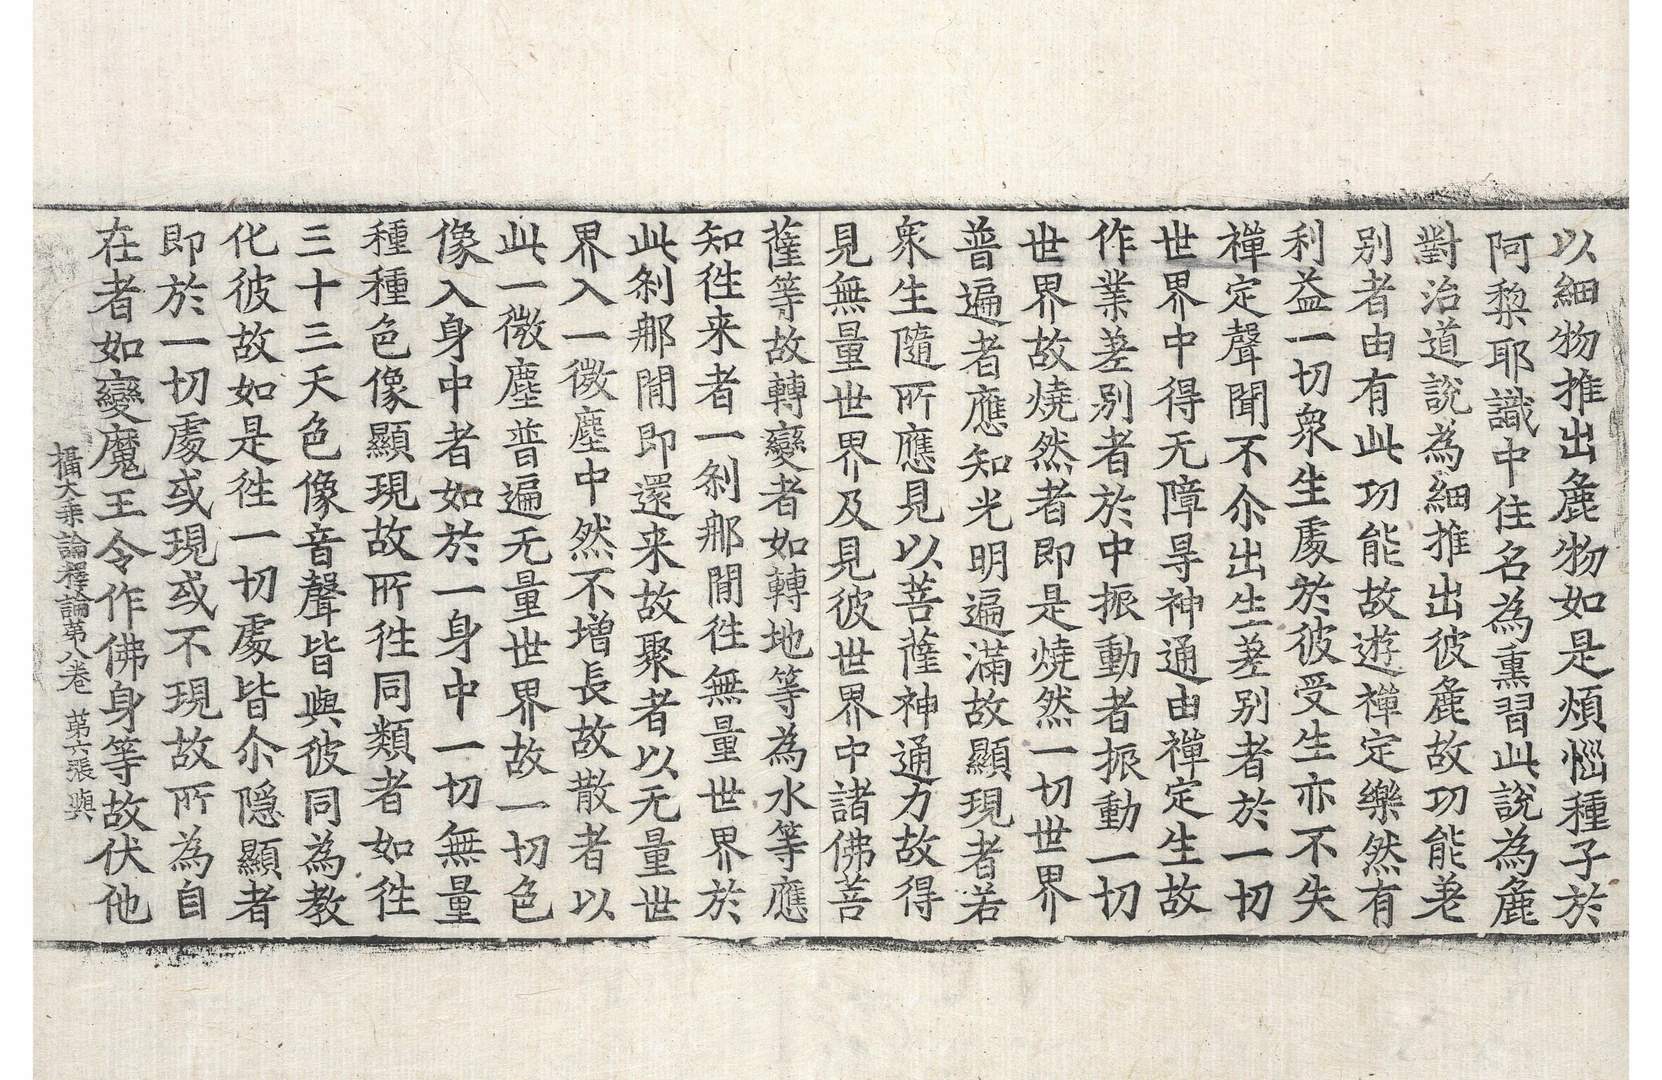 以細物推出麁物如是煩惱種子於
阿棃耶識中住名為熏習此說為麁
對治道說為細推出彼麁故功能差
别者由有此功能故遊禪定樂然有
利益一切衆生處於彼受生亦不失
禪定聲聞不尒出生差别者於一切
世界中得无障㝵神通由禪定生故
作業差别者於中振動者振動一切
世界故燒然者即是燒然一切世界
普遍者應知光明遍滿故顯現者若
衆生隨所應見以菩薩神通力故得
見無量世界及見彼世界中諸佛菩
薩等故轉變者如轉地等為水等應
知徃来者一刹那間徃無量世界於
此刹那間即還来故聚者以无量世
界入一微塵中然不增長故散者以
此一微塵普遍无量世界故一切色
像入身中者如於一身中一切無量
種種色像顯現故所徃同類者如徃
三十三天色像音聲皆與彼同為教
化彼故如是徃一切處皆尒隱顯者
即於一切處或現或不現故所為自
在者如變魔王令作佛身等故伏他
攝大乘論釋論第八卷 第六張 與